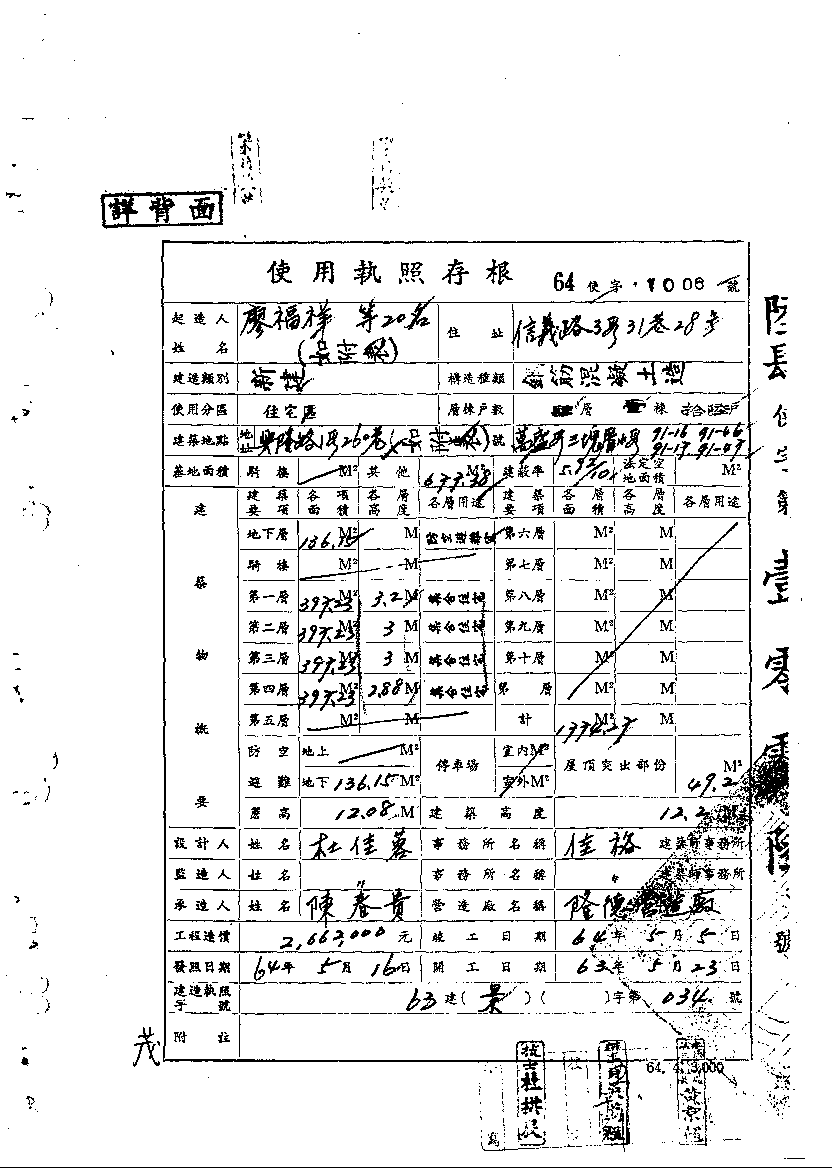 詳背面
使用執照存根 64 使字 1006 號
起造人姓名 廖福祥 等20名 (如附表) 住址 信義路3段31巷28号
建造類別 新建 構造種類 鋼筋混凝土造
使用分區 住宅區 層棟戶數 層 棟 拾陸戶
建築地點 地址 興隆路1段260巷(如附表) 號 萬盛段三塊厝小段 91-16 91-46
91-17 91-47
基地面積 騎樓 M² 其他 677.38 M² 建蔽率 5.93/10 法定空地面積 M²
建築物概要
建築要項 各項面積 各層高度 各層用途 建築要項 各層面積 各層高度 各層用途
地下層 136.15 M² M 第六層 M² M
騎樓 M² M 第七層 M² M
第一層 397.23 M² 3.2 M 第八層 M² M
第二層 397.23 M² 3 M 第九層 M² M
第三層 397.23 M² 3 M 第十層 M² M
第四層 397.23 M² 2.88 M 第 層 M² M
第五層 M² M 計 M²
防空避難 地上 M² 停車場 室內M² 屋頂突出部份 M²
地下 136.15 M² 室外M² 49.2
簷高 12.08 M 建築高度 12.2 M
設計人 姓名 杜佳蓉 事務所名稱 佳裕 建築師事務所
監造人 姓名 事務所名稱 〃 建築師事務所
承造人 姓名 陳春貴 營造廠名稱 隆德營造廠
工程造價 2,662,000 元 竣工日期 64年 5月 5日
發照日期 64年 5月 16日 開工日期 63年 5月 23日
建造執照字號 63建(景)( )字第 034 號
附註
茂
64. 4. 3,000
使字第壹零零陸號